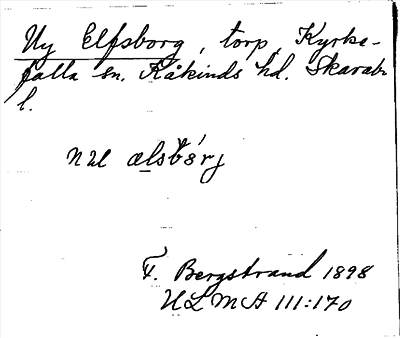 Ny Elfsborg, torp, Kyrke-
falla sn. Kåkinds hd. Skarab.
l.
ælsbórj
F. Bergstrand 1898
ULMA 111:170